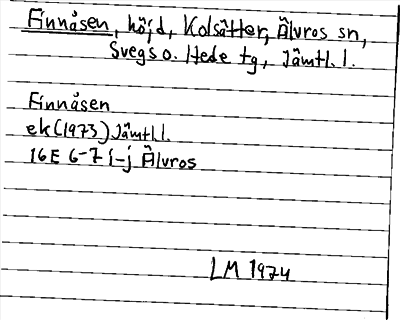 Finnåsen, höjd, Kolsätter, Älvros sn,
Svegs o. Hede tg, Jämtl. l.
Finnåsen
ek (1973) Jämtl. l.
16E 6-7 i-j Älvros
LM 1974